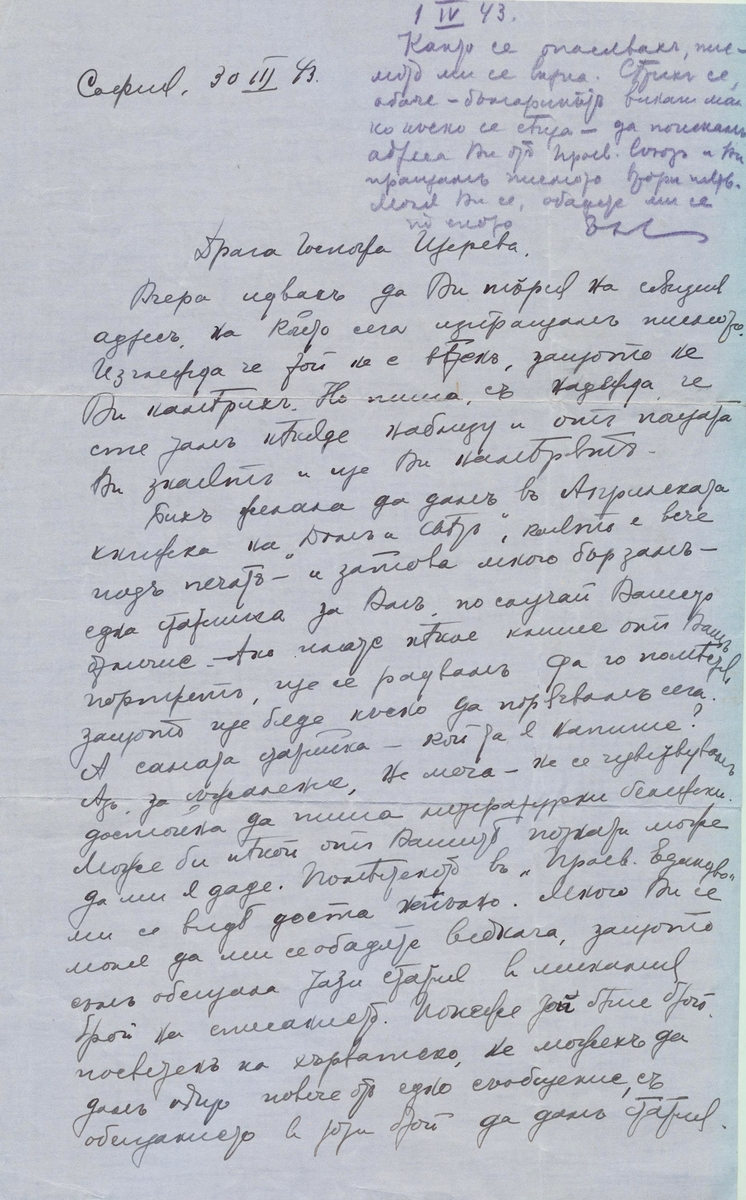 1 IV 43.
Както се опасявахъ, пис-
мото ми се върна. Сетихъ се,
обаче – българинътъ викаш мал-
ко късно се сеща – да поискамъ
адреса Ви отъ Просв. Съюзъ и Ви
пращамъ писмото втори пѫть.
Моля Ви се, обадете ми се
по скоро
София, 30 III 43.
Драга Госпожа Щерева,
Вчера идвахъ да Ви търся на същия
адресъ, на който сега изпращамъ писмото.
Изглежда че той не е вѣренъ, защото не
Ви намѣрихъ. Но пиша, съ надежда, че
сте тамъ нѣкѫде наблизу и отъ пощата
Ви знаятъ и ще Ви намѣрятъ.
Бихъ желала да дамъ въ Априлската
книжка на „Домъ и Свѣтъ“, която е вече
подъ печатъ – и затова много бързамъ –
една статийка за Васъ, по случай Вашето
отличие. – Ако имате нѣкое клише отъ Вашъ
портретъ, ще се радвамъ да го помѣстя,
защото ще бѫде късно да порѫчвамъ сега.
А самата статийка – кой да я напише?
Азъ, за съжаление, не мога – не се чувствувамъ
достойна да пиша литературни бележки.
Може би нѣкой отъ Вашитѣ познати може
да ми я даде. Помѣстеното въ „Просв. Единство“
ми се видѣ доста        . Много Ви се
моля да ми се обадите веднага, защото
съмъ обещала тази статия въ миналия
брой на списанието. Понеже той бѣше брой,
посветенъ на хърватско, не можехъ да
дамъ        повече отъ едно съобщение, съ
обещанието въ този брой да дамъ статия.